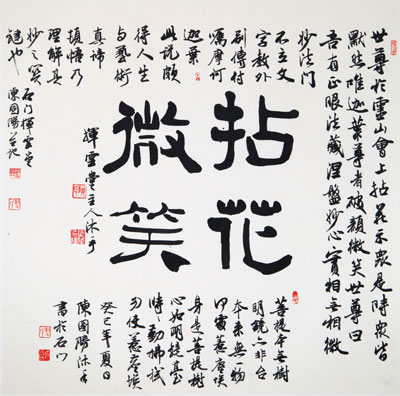 世尊於靈山會上拈花示眾是時眾皆
默然唯迦葉尊者破顏微笑世尊曰
吾有正眼法藏涅盤妙心實相無相微
妙法門
不立文
字教外
別傳付
囑摩訶
迦葉
此説頗
得人生
与藝術
真諦
悟乃
理解其
妙之
也
石门揮雲堂
陳國陽并記
拈花
微笑
揮雲堂主人沐手
菩提本無樹
明鏡亦非台
本來無一物
何處惹塵埃
身是菩提樹
心如明鏡臺
時〻勤拂拭
勿使惹塵埃
癸巳年夏日
陳國陽沐手
書於石门